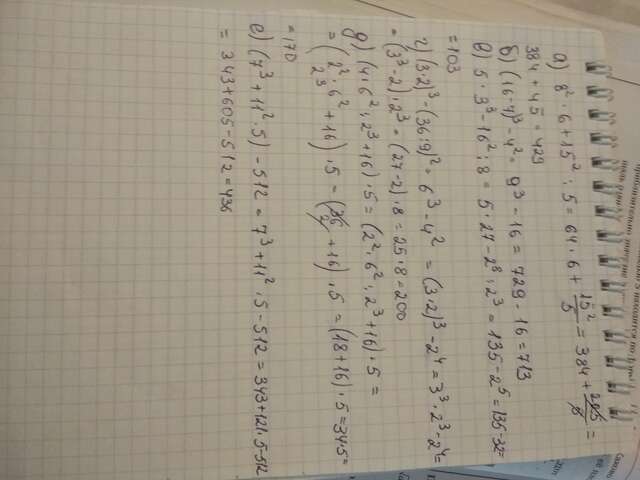 а) 8² · 6 + 15² : 5 = 64 · 6 + 15²/5 = 384 + 225/5 =
384 + 45 = 429
б) (16-7)³ - 4² = 9³ - 16 = 729 - 16 = 713
в) 5 · 3³ - 16² : 8 = 5 · 27 - 2⁸ : 2³ = 135 - 2⁵ = 135 - 32 =
= 103
г) (3·2)³ - (36:9)² = 6³ - 4² = (3·2)³ - 2⁴ = 3³ · 2³ - 2⁴ =
= (3³ - 2) · 2³ = (27 - 2) · 8 = 25 · 8 = 200
д) (4 · 6² : 2³ + 16) · 5 = (2² · 6² : 2³ + 16) · 5 =
= (2² · 6²/2³ + 16) · 5 = (36/2 + 16) · 5 = (18 + 16) · 5 = 34·5 =
= 170
е) (7³ + 11² · 5) - 512 = 7³ + 11² · 5 - 512 = 343 + 121·5 - 512
= 343 + 605 - 512 = 436